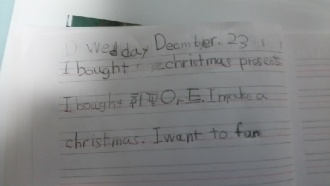 wedday December. 23
I bought christmas presents
I bought 키보드. I make a
christmas. I want to fun